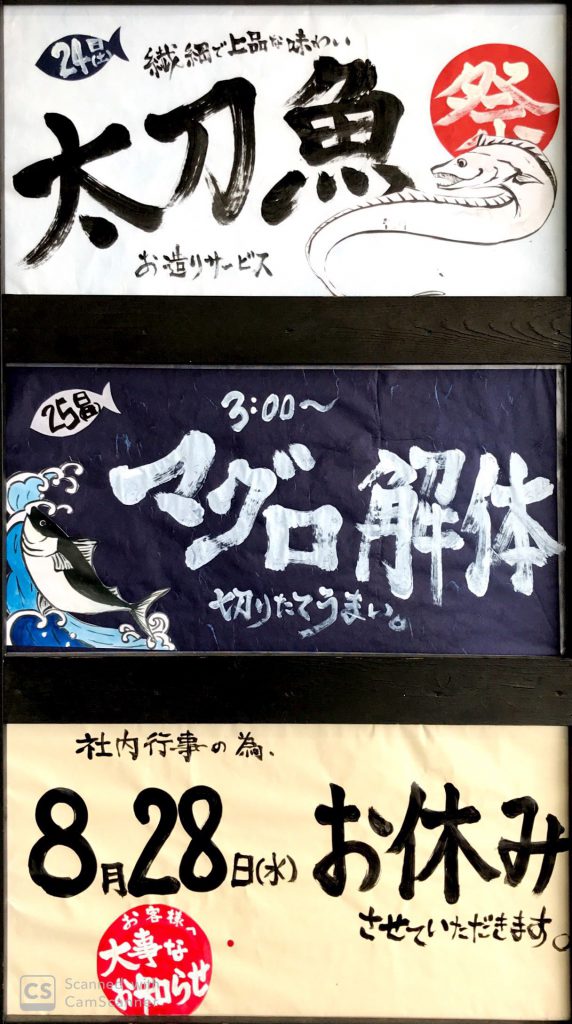 24日(土)
繊細で上品な味わい
太刀魚
祭
お造りサービス
25日(日)
3:00〜
マグロ解体
切りたてうまい。
社内行事の為、
8月28日(水)
お休み
させていただきます。
お客様へ
大事な
お知らせ
CS Scanned with
CamScanner